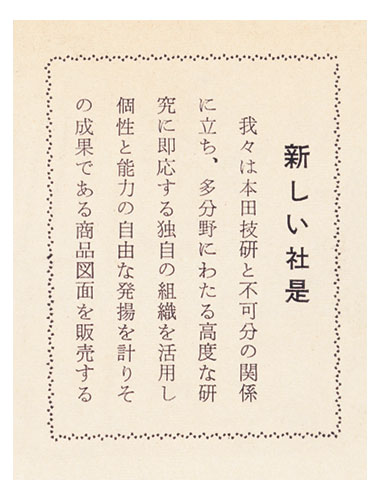 新しい社是
我々は本田技研と不可分の関係
に立ち、多分野にわたる高度な研
究に即応する独自の組織を活用し
個性と能力の自由な発揚を計りそ
の成果である商品図面を販売する